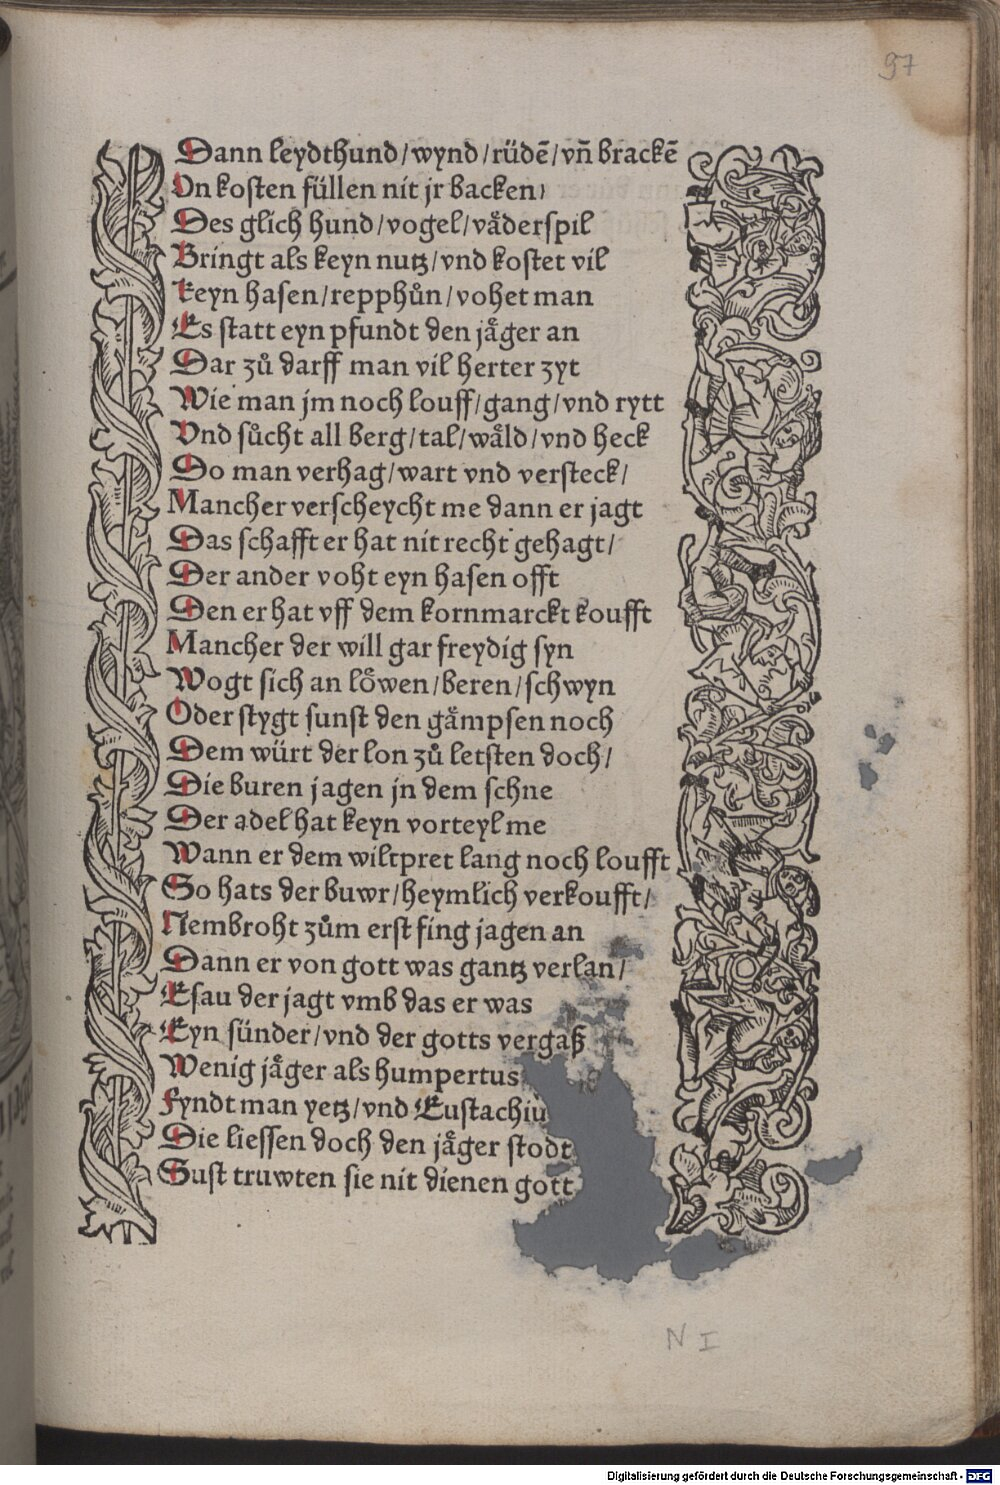 97
Dann leydthund/wynd/rüdē/vn̄ brackē
On kosten füllen nit jr backen/
Des glich hund/vogel/våderspil
Bringt als keyn nutz/vnd kostet vil
keyn hasen/repphůn/vohet man
Es statt eyn pfundt den jåger an
Dar zů darff man vil herter zyt
Wie man jm noch louff/gang/vnd rytt
Vnd sůcht all berg/tal/wåld/vnd heck
Do man verhag/wart vnd versteck/
Mancher verscheycht me dann er jagt
Das schafft er hat nit recht gehagt/
Der ander voht eyn hasen offt
Den er hat vff dem kornmarckt koufft
Mancher der will gar freydig syn
Wogt sich an lo᷈wen/beren/schwyn
Oder stygt sunst den gåmpsen noch
Dem würt der lon zů letsten doch/
Die buren jagen jn dem schne
Der adel hat keyn vorteyl me
Wann er dem wiltpret lang noch loufft
So hats der buwr/heymlich verkoufft/
Nembroht zům erst fing jagen an
Dann er von gott was gantz verlan/
Esau der jagt vmb das er was
Eyn sünder/vnd der gotts vergaß
Wenig jåger als humpertus
Fyndt man yetz/vnd Eustachiu
Die liessen doch den jåger stodt
Sust truwten sie nit dienen gott
N I
Digitalisierung gefördert durch die Deutsche Forschungsgemeinschaft - DFG